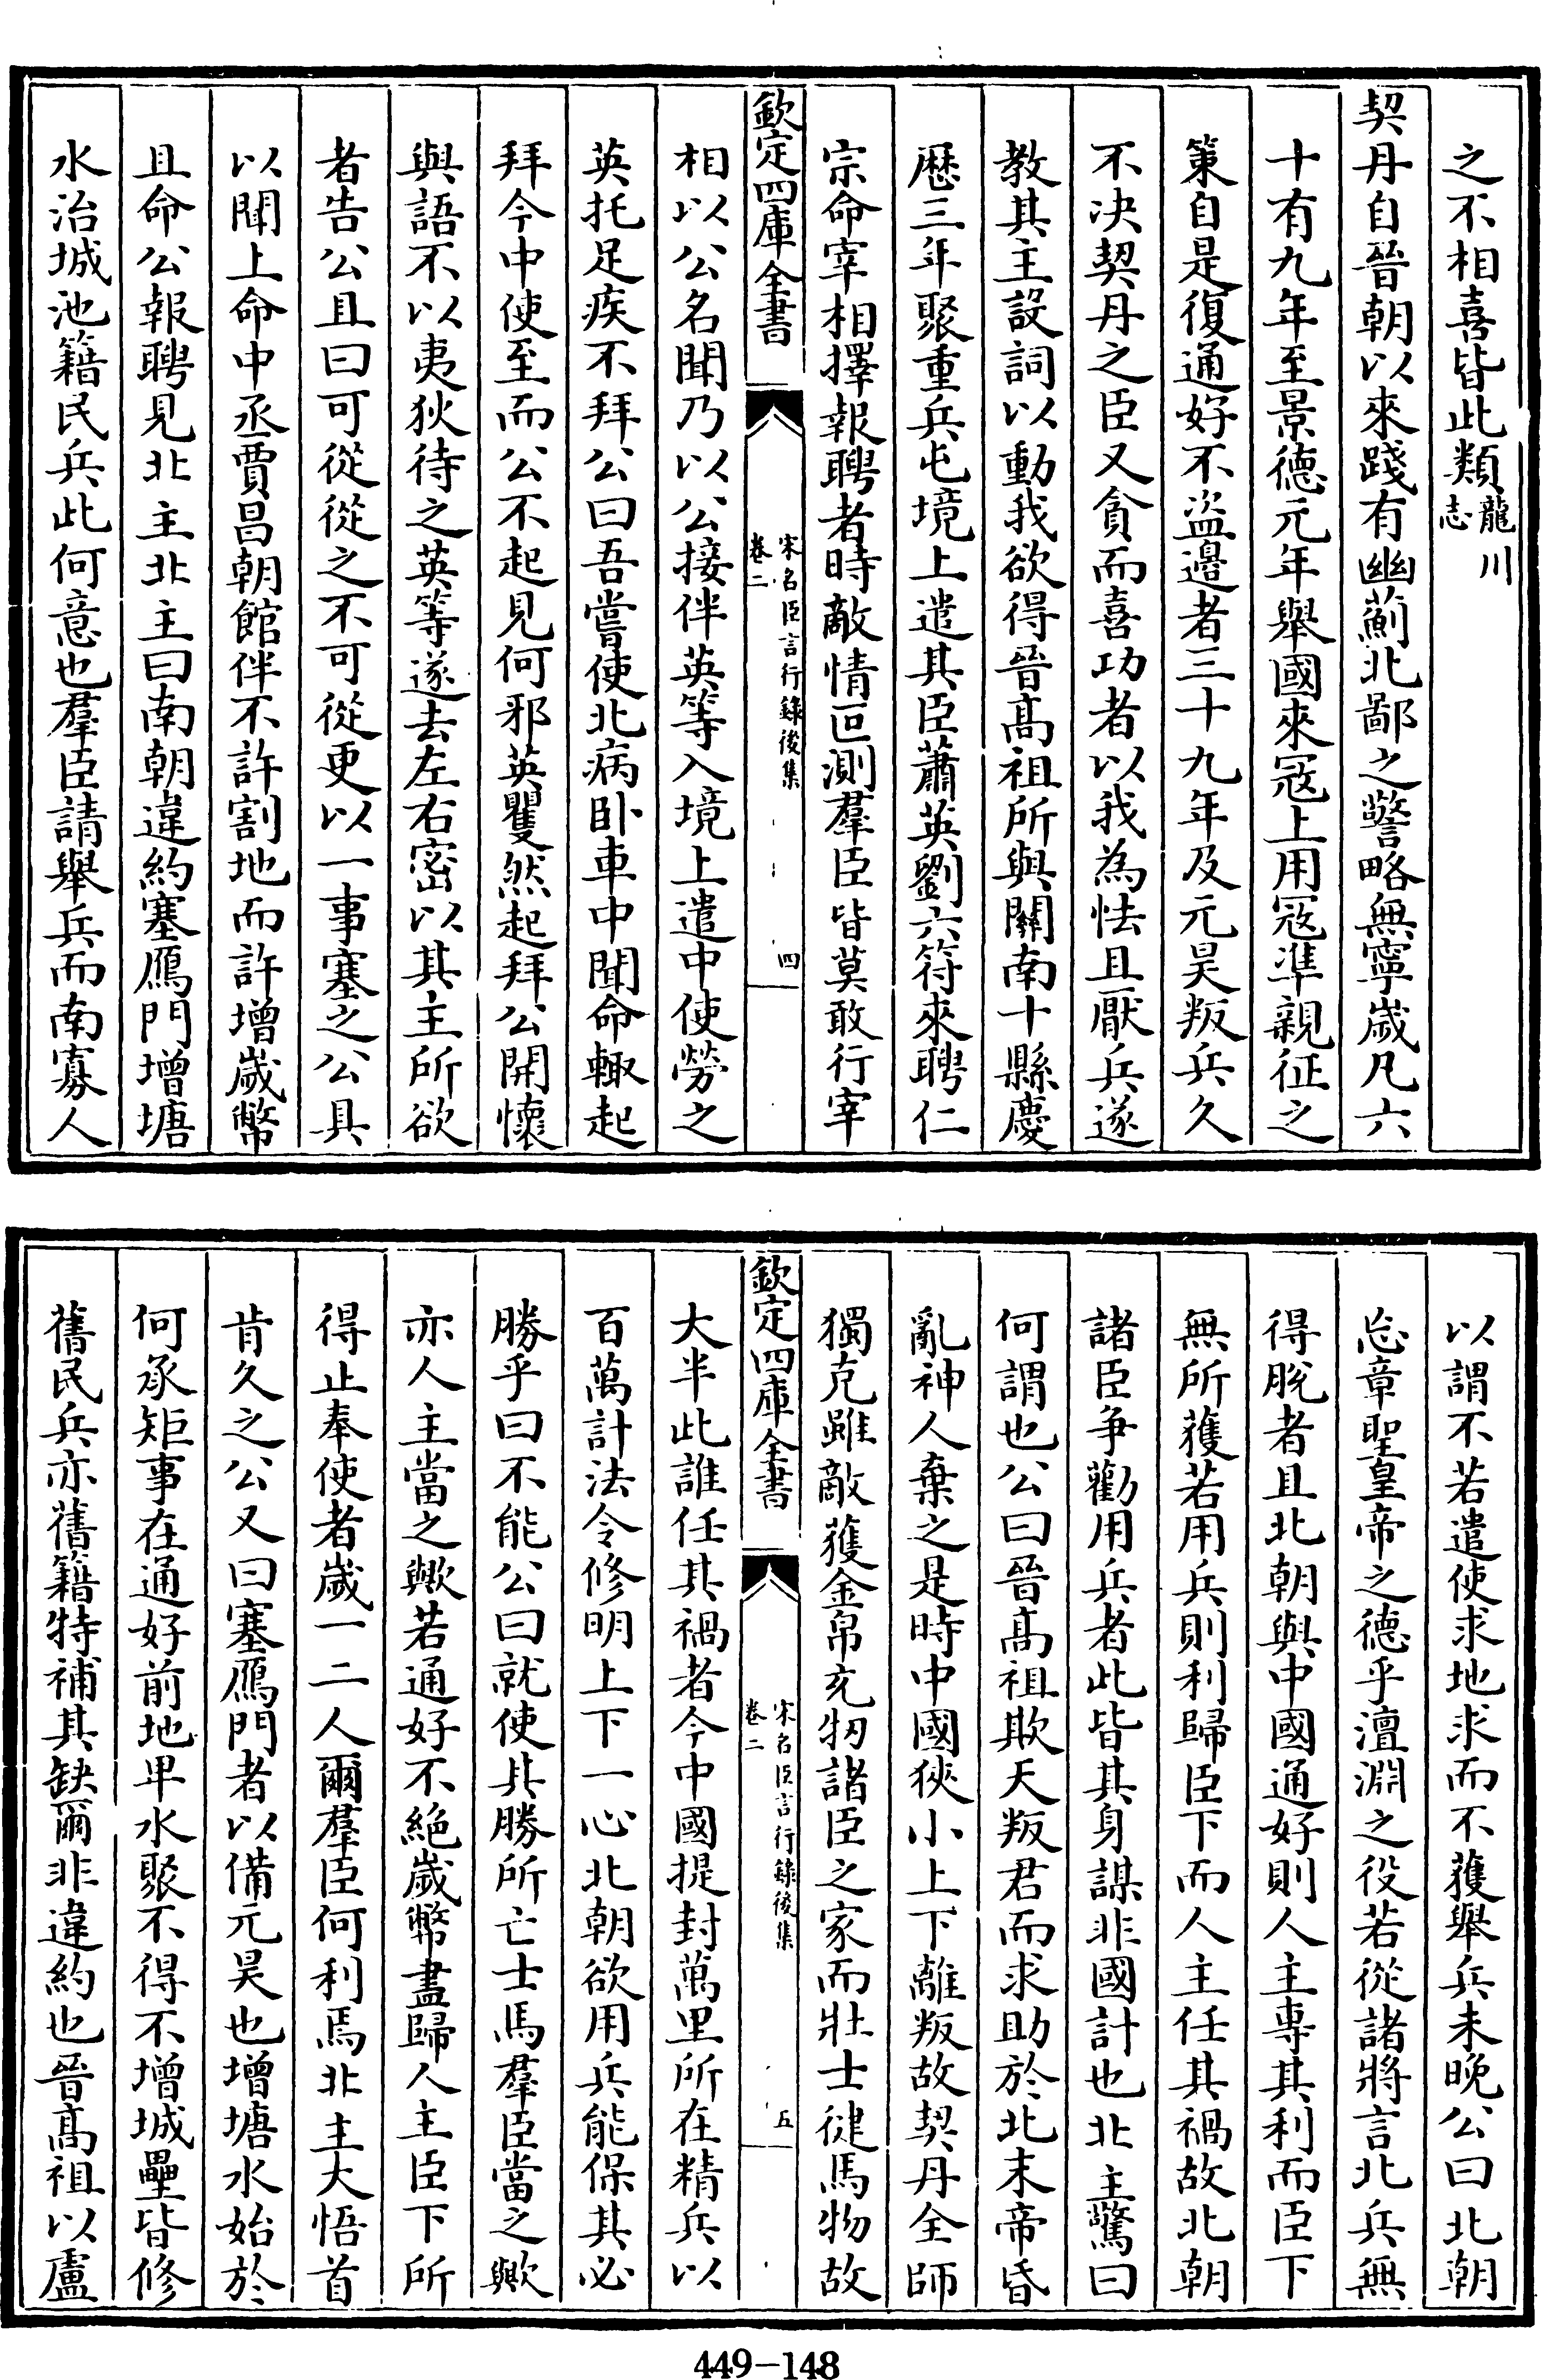 之不相喜皆此類龍川志
契丹自晉朝以來踐有幽薊北鄙之警略無寧歲凡六
十有九年至景德元年舉國來冦上用冦凖親征之
策自是復通好不盜邊者三十九年及元昊叛兵久
不决契丹之臣又貪而喜功者以我為怯且厭兵遂
教其主設詞以動我欲得晉髙祖所與關南十縣慶
歴三年聚重兵屯境上遣其臣蕭英劉六符來聘仁
宗命宰相擇報聘者時敵情叵測羣臣皆莫敢行宰
欽定四庫全書
宋名臣言行錄後集
卷二
四
相以公名聞乃以公接伴英等入境上遣中使勞之
英托足疾不拜公曰吾嘗使北病卧車中聞命輙起
拜今中使至而公不起見何邪英瞿然起拜公開懷
與語不以夷狄待之英等遂去左右密以其主所欲
者告公且曰可從從之不可從更以一事塞之公具
以聞上命中丞賈昌朝館伴不許割地而許增歲幣
且命公報聘見北主北主曰南朝違約塞鴈門增塘
水治城池籍民兵此何意也羣臣請舉兵而南寡人
以謂不若遣使求地求而不獲舉兵未晚公曰北朝
忘章聖皇帝之德乎澶淵之役若從諸將言北兵無
得脫者且北朝與中國通好則人主專其利而臣下
無所獲若用兵則利歸臣下而人主任其禍故北朝
諸臣争勸用兵者此皆其身謀非國計也北主驚曰
何謂也公曰晉髙祖欺天叛君而求助於北末帝昏
亂神人棄之是時中國狹小上下離叛故契丹全師
獨克雖敵獲金帛充牣諸臣之家而壯士徤馬物故
欽定四庫全書
宋名臣言行錄後集
卷二
五
大半此誰任其禍者今中國提封萬里所在精兵以
百萬計法令修明上下一心北朝欲用兵能保其必
勝乎曰不能公曰就使其勝所亡士馬羣臣當之歟
亦人主當之歟若通好不絶歲幣盡歸人主臣下所
得止奉使者歲一二人爾羣臣何利焉北主大悟首
肯久之公又曰塞鴈門者以備元昊也增塘水始於
何承矩事在通好前地卑水聚不得不增城壘皆修
舊民兵亦舊籍特補其缺爾非違約也晉髙祖以盧
449-148